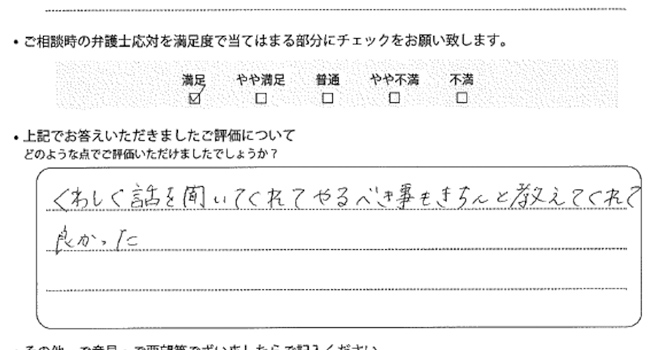 ・ご相談時の弁護士応対を満足度で当てはまる部分にチェックをお願い致します。
満足 やや満足 普通 やや不満 不満
☑ ☐ ☐ ☐ ☐
・上記でお答えいただきましたご評価について
どのような点でご評価いただけましたでしょうか？
くわしく話を聞いてくれてやるべき事もきちんと教えてくれて
良かった
・その他、ご意見・ご要望等ございましたらご記入ください